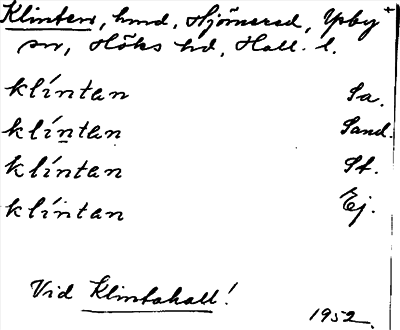 Klinten, hmd, Hjörnered, Ysby
sn, Höks hd, Hall. l.
klíntan Sa.
klíntan Sand.
klíntan St.
klíntan Ej.
Vid Klintahall!
1952.